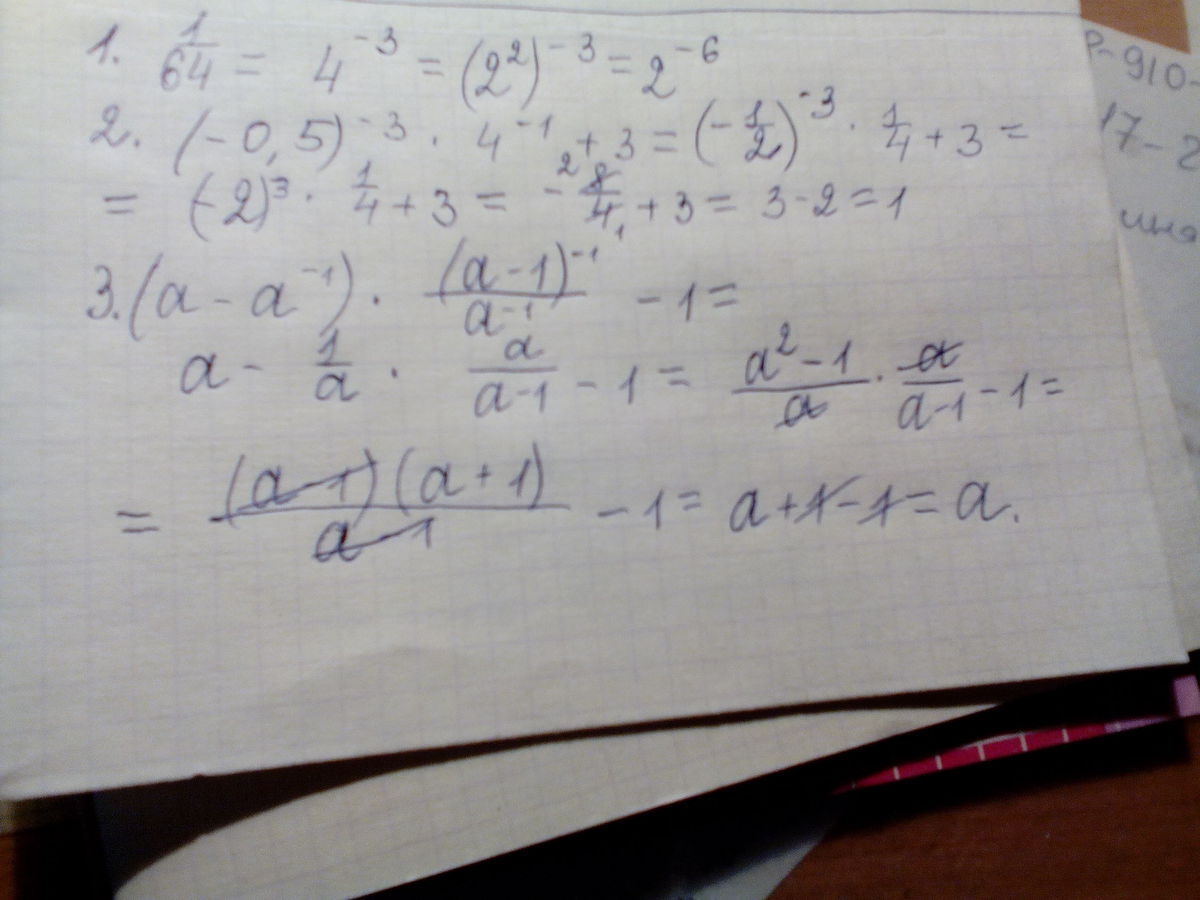 1. 1/64 = 4^-3 = (2^2)^-3 = 2^-6
2. (-0,5)^-3 · 4^-1 + 3 = (-1/2)^-3 · 1/4 + 3 =
= (-2)^3 · 1/4 + 3 = -8/4 + 3 = 3-2 = 1
3. (a - a^-1) · (a-1)^-1/a^-1 - 1 =
a - 1/a · a/a-1 - 1 = a^2-1/a · a/a-1 - 1 =
= (a-1)(a+1)/a-1 - 1 = a+1-1 = a.
-910-
17-